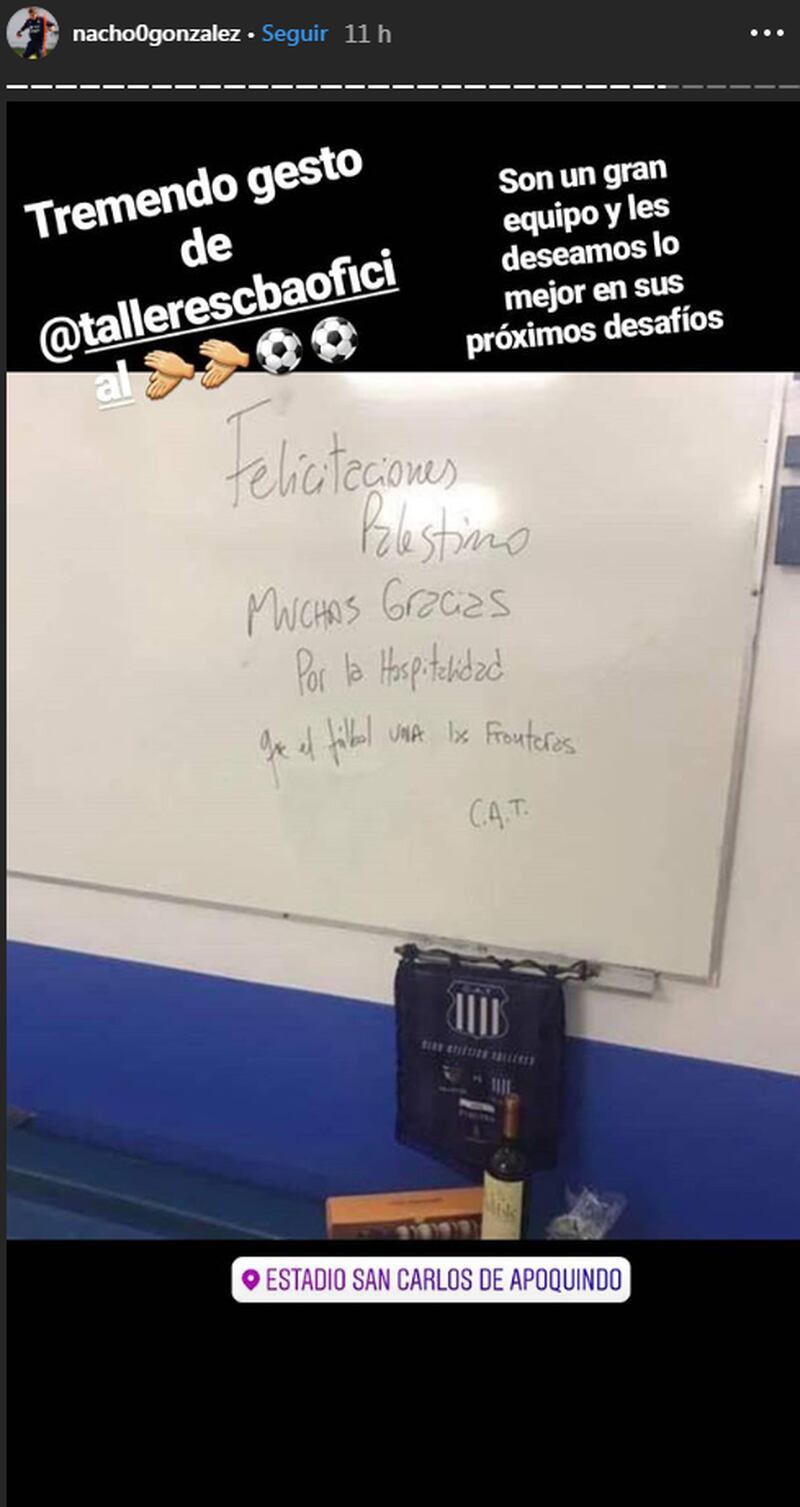 nacho0gonzalez • Seguir 11 h
Tremendo gesto
de
@tallerescbaofici
al 👏👏⚽⚽
Son un gran
equipo y les
deseamos lo
mejor en sus
próximos desafíos
Felicitaciones
Palestino
MUCHAS Gracias
Por la Hospitalidad
que el fútbol UNA las Fronteras
C.A.T.
C.A.T
CLUB ATLÉTICO TALLERES
ESTADIO SAN CARLOS DE APOQUINDO